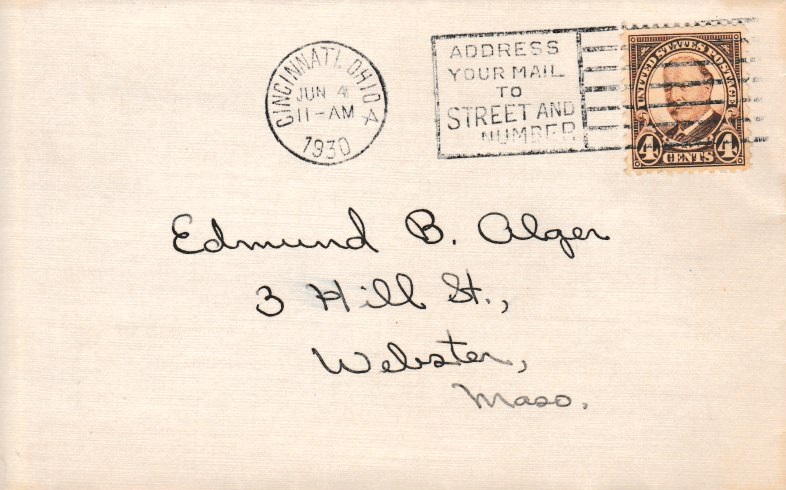 CINCINNATI, OHIO 4
JUN 4
11-AM
1930
ADDRESS
YOUR MAIL
TO
STREET AND
NUMBER
UNITED STATES POSTAGE
4 CENTS 4
Edmund B. Alger
3 Hill St.,
Webster,
Mass.